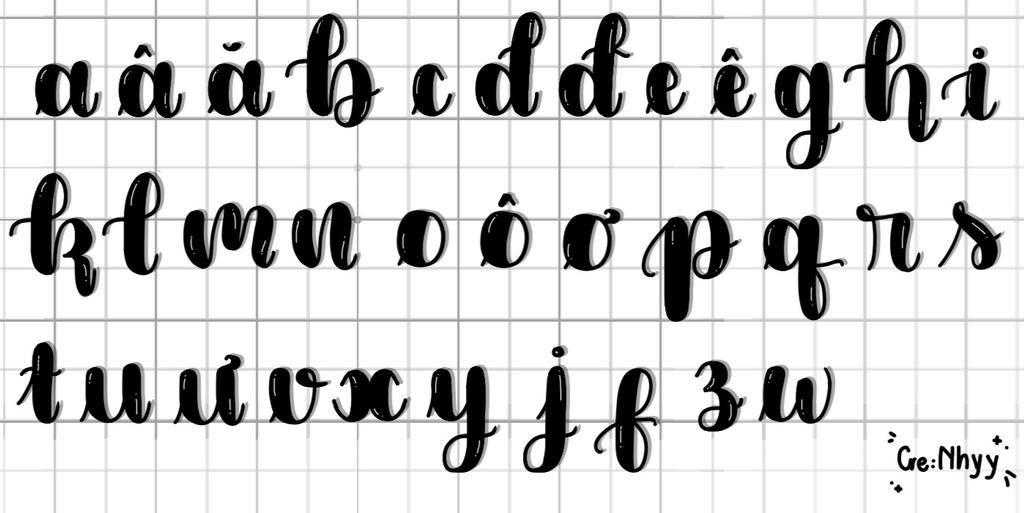 a â ă b c d đ e ê g h i
k l m n o ô ơ p q r s
t u ư v x y j f z w
Cre: Nhyy